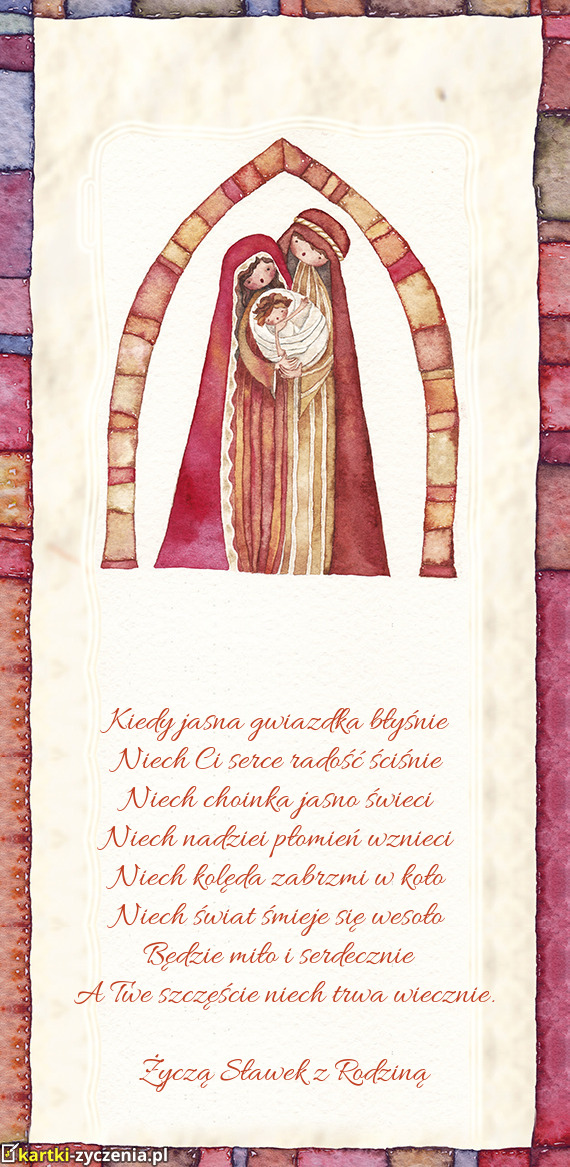 Kiedy jasna gwiazdka błyśnie
Niech Ci serce radość ściśnie
Niech choinka jasno świeci
Niech nadziei płomień wznieci
Niech kolęda zabrzmi w koło
Niech świat śmieje się wesoło
Będzie miło i serdecznie
A Twe szczęście niech trwa wiecznie.
Życzą Sławek z Rodziną
kartki-zyczenia.pl